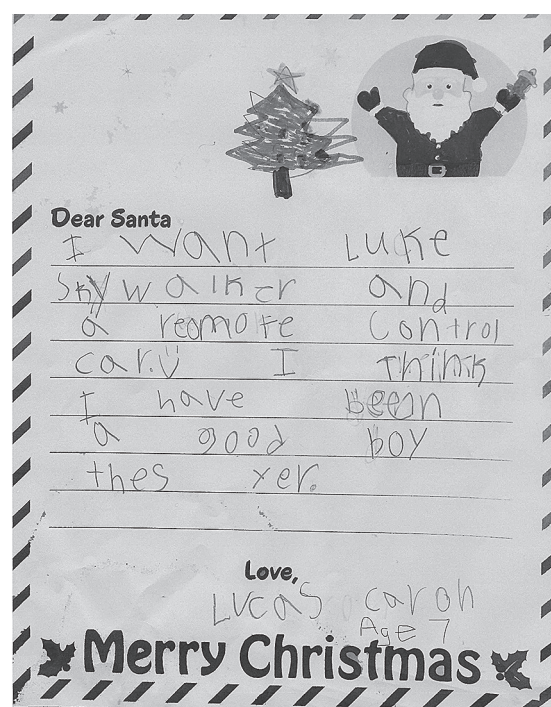 Dear Santa
I want Luke
Skywalker and
a reomote control
car. I Think
I have been
a good boy
thes yer.
Love,
Lucas caron
Age 7
Merry Christmas